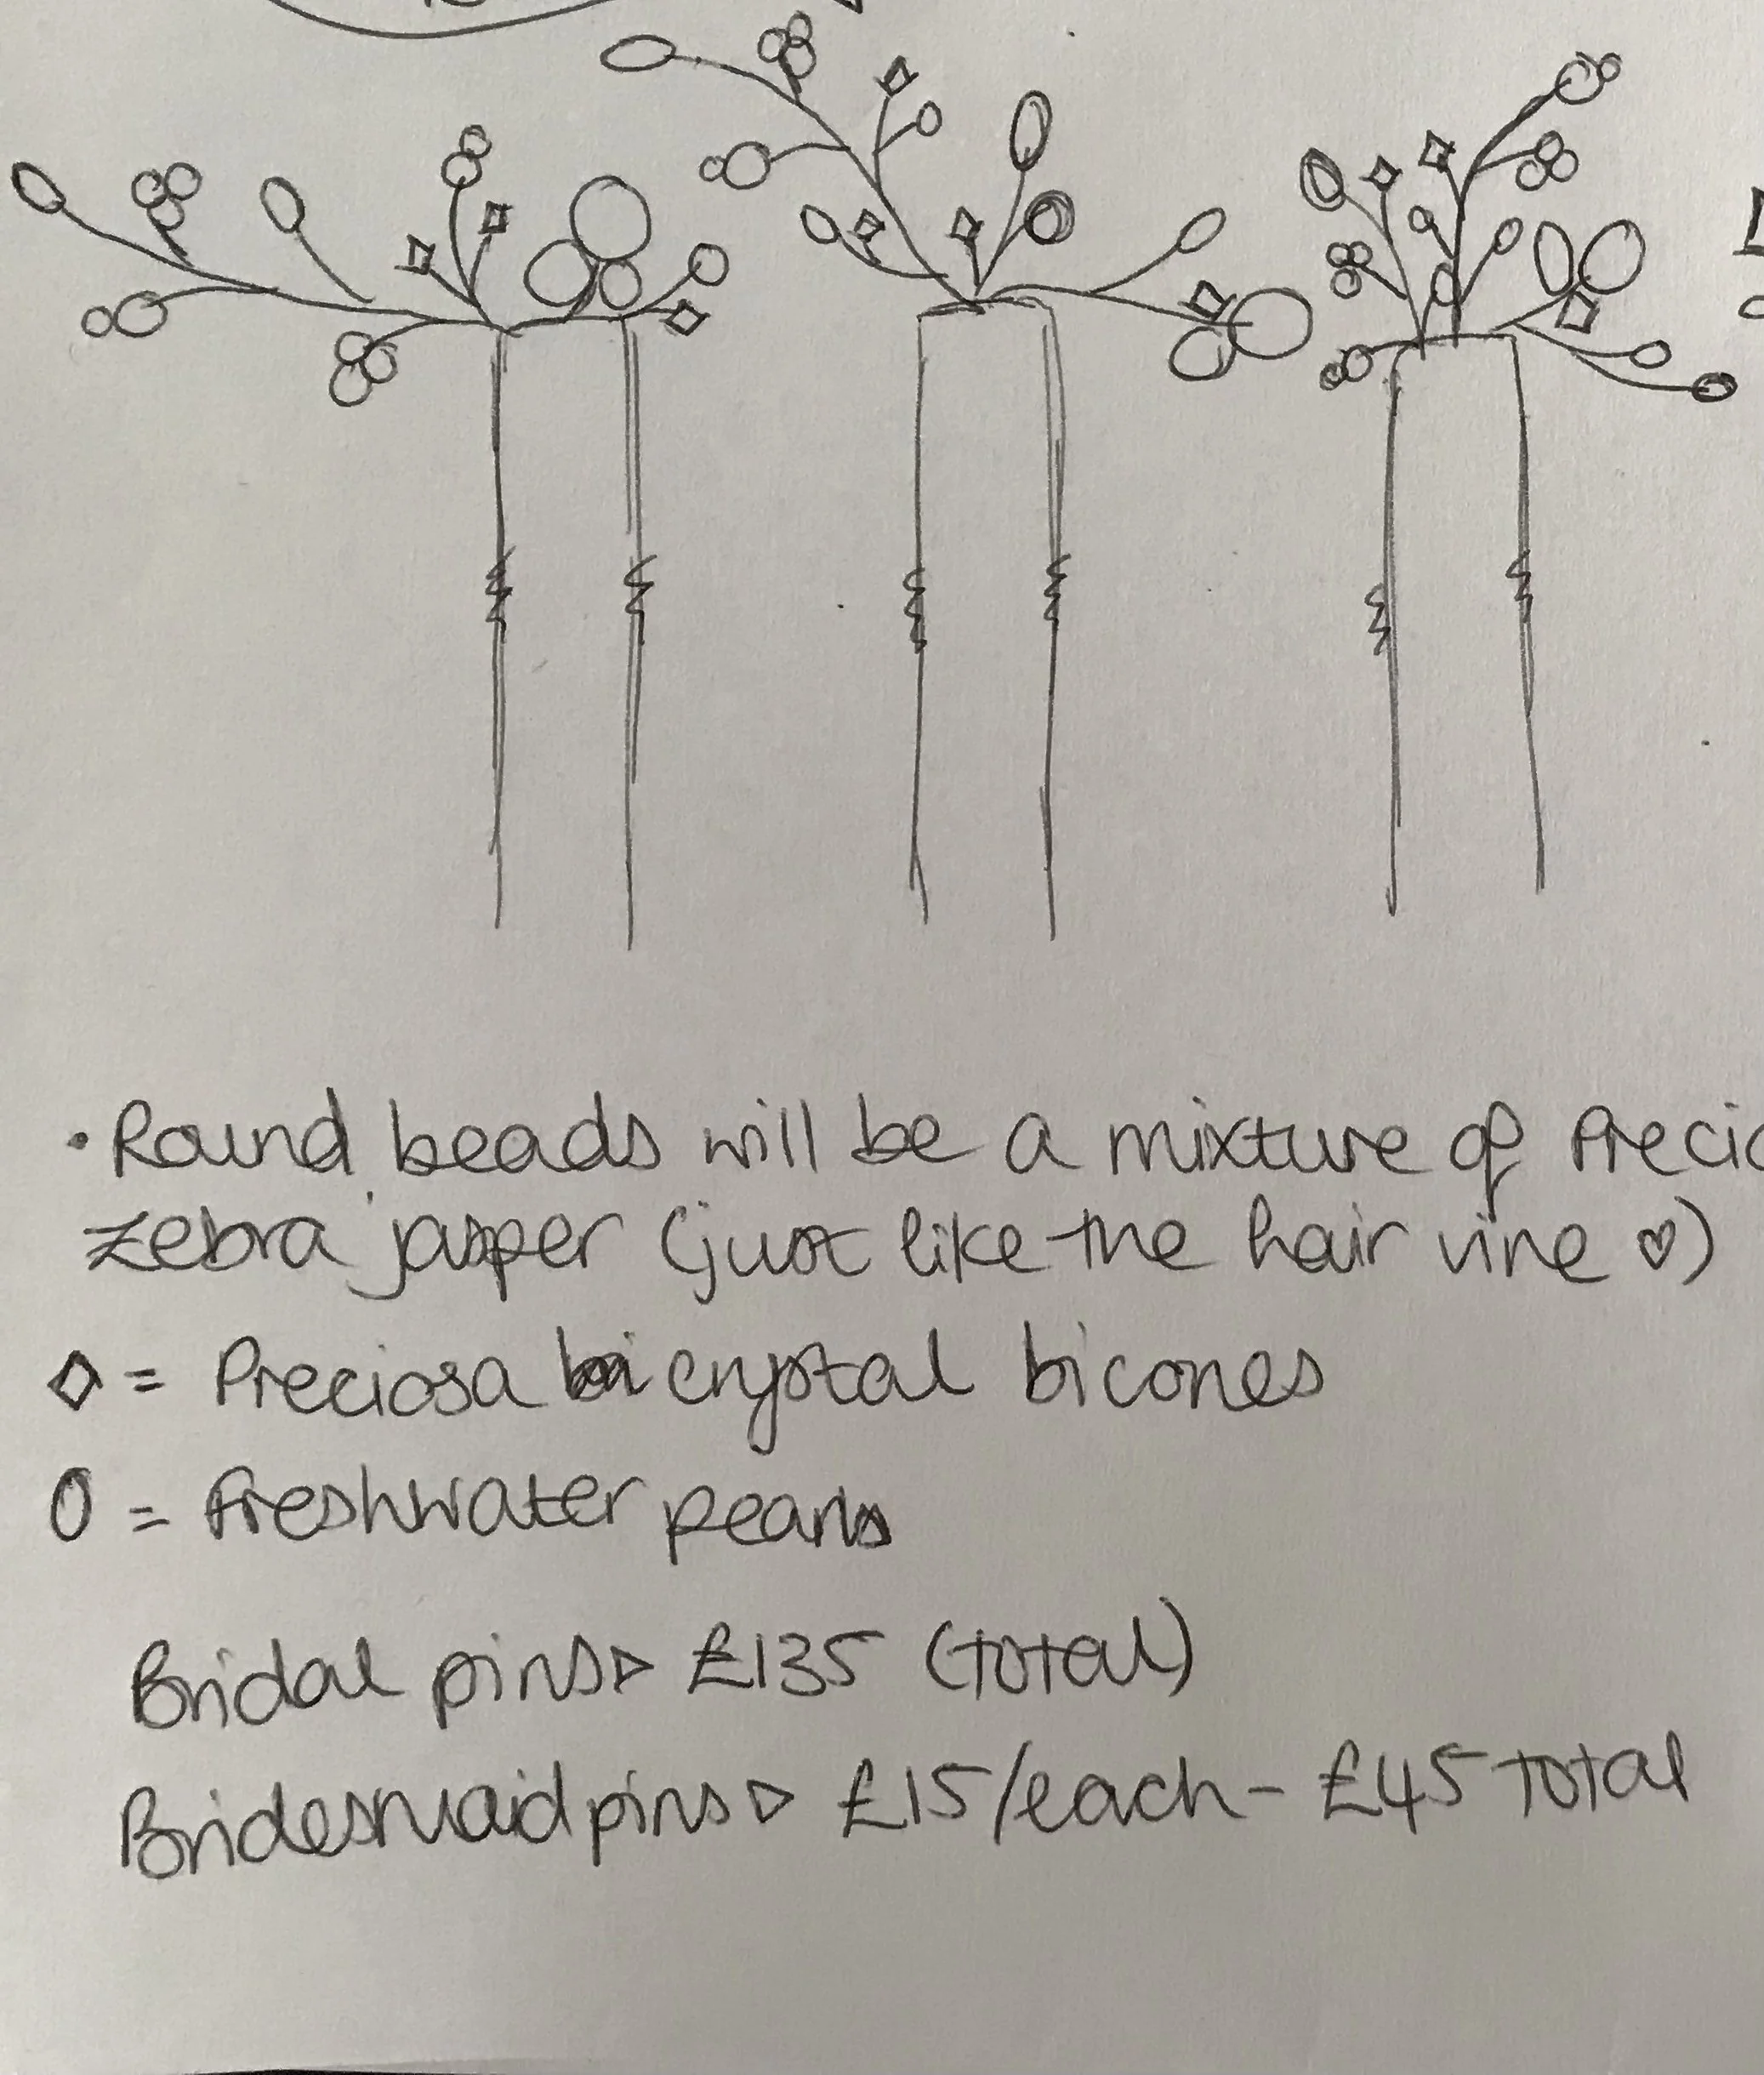 • Round beads will be a mixture of Precio
zebra jasper (just like the hair vine ♡)
◇ = Preciosa crystal bicones
0 = Freshwater pearls
Bridal pins ▷ £135 (total)
Bridesmaid pins ▷ £15/each - £45 total